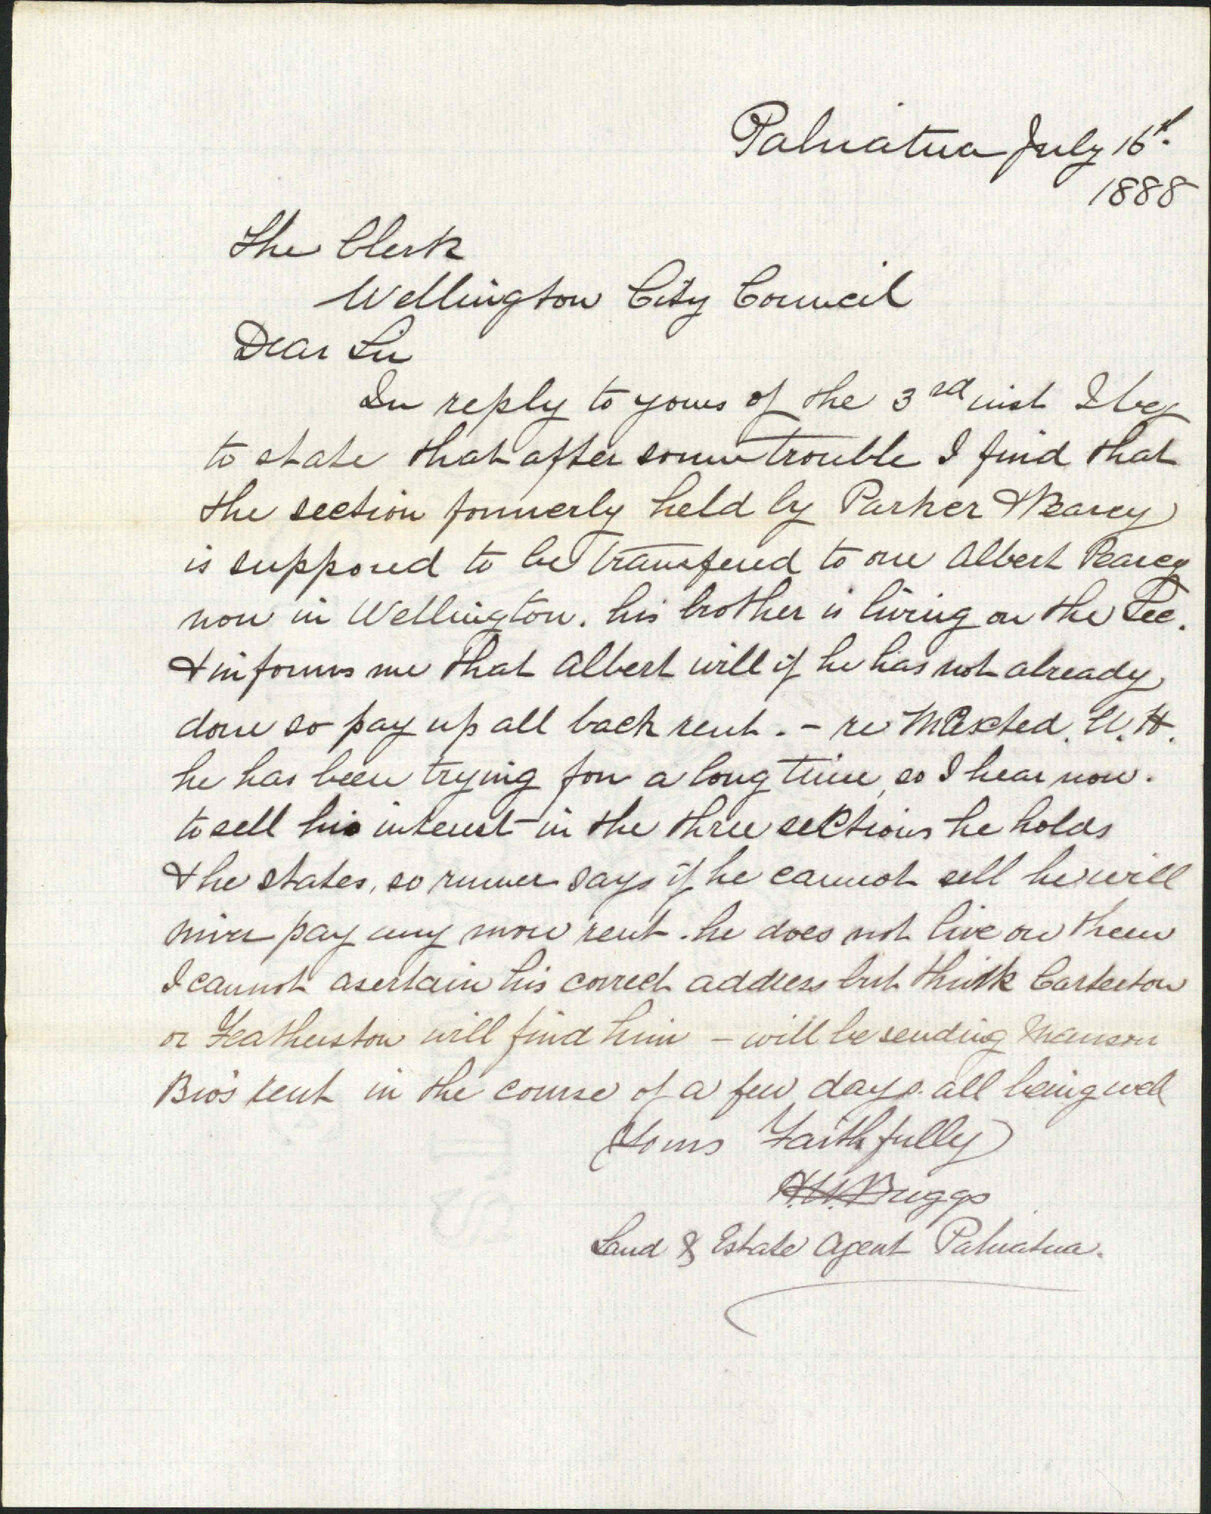 Pahiatua July 16th
1888
The Clerk
Wellington City Council
Dear Sir
In reply to yours of the 3rd inst I beg
to state that after some trouble I find that
the section formerly held by Parker & Pearcy
is supposed to be transfered to one Albert Pearcy
now in Wellington. his brother is living on the Sec.
& informs me that Albert will if he has not already
done so pay up all back rent. - re Maxted. W. H.
he has been trying for a long time, so I hear now.
to sell his interest in the three sections he holds
& he states, so rumer says if he cannot sell he will
niver pay any more rent. he does not live on them
I cannot asertain his correct address but think Carterton
or Featherston will find him - will be sending Manson
Bro's rent in the course of a few days. all being well
Yours Faithfully
Briggs
Land & Estate Agent Pahiatua.